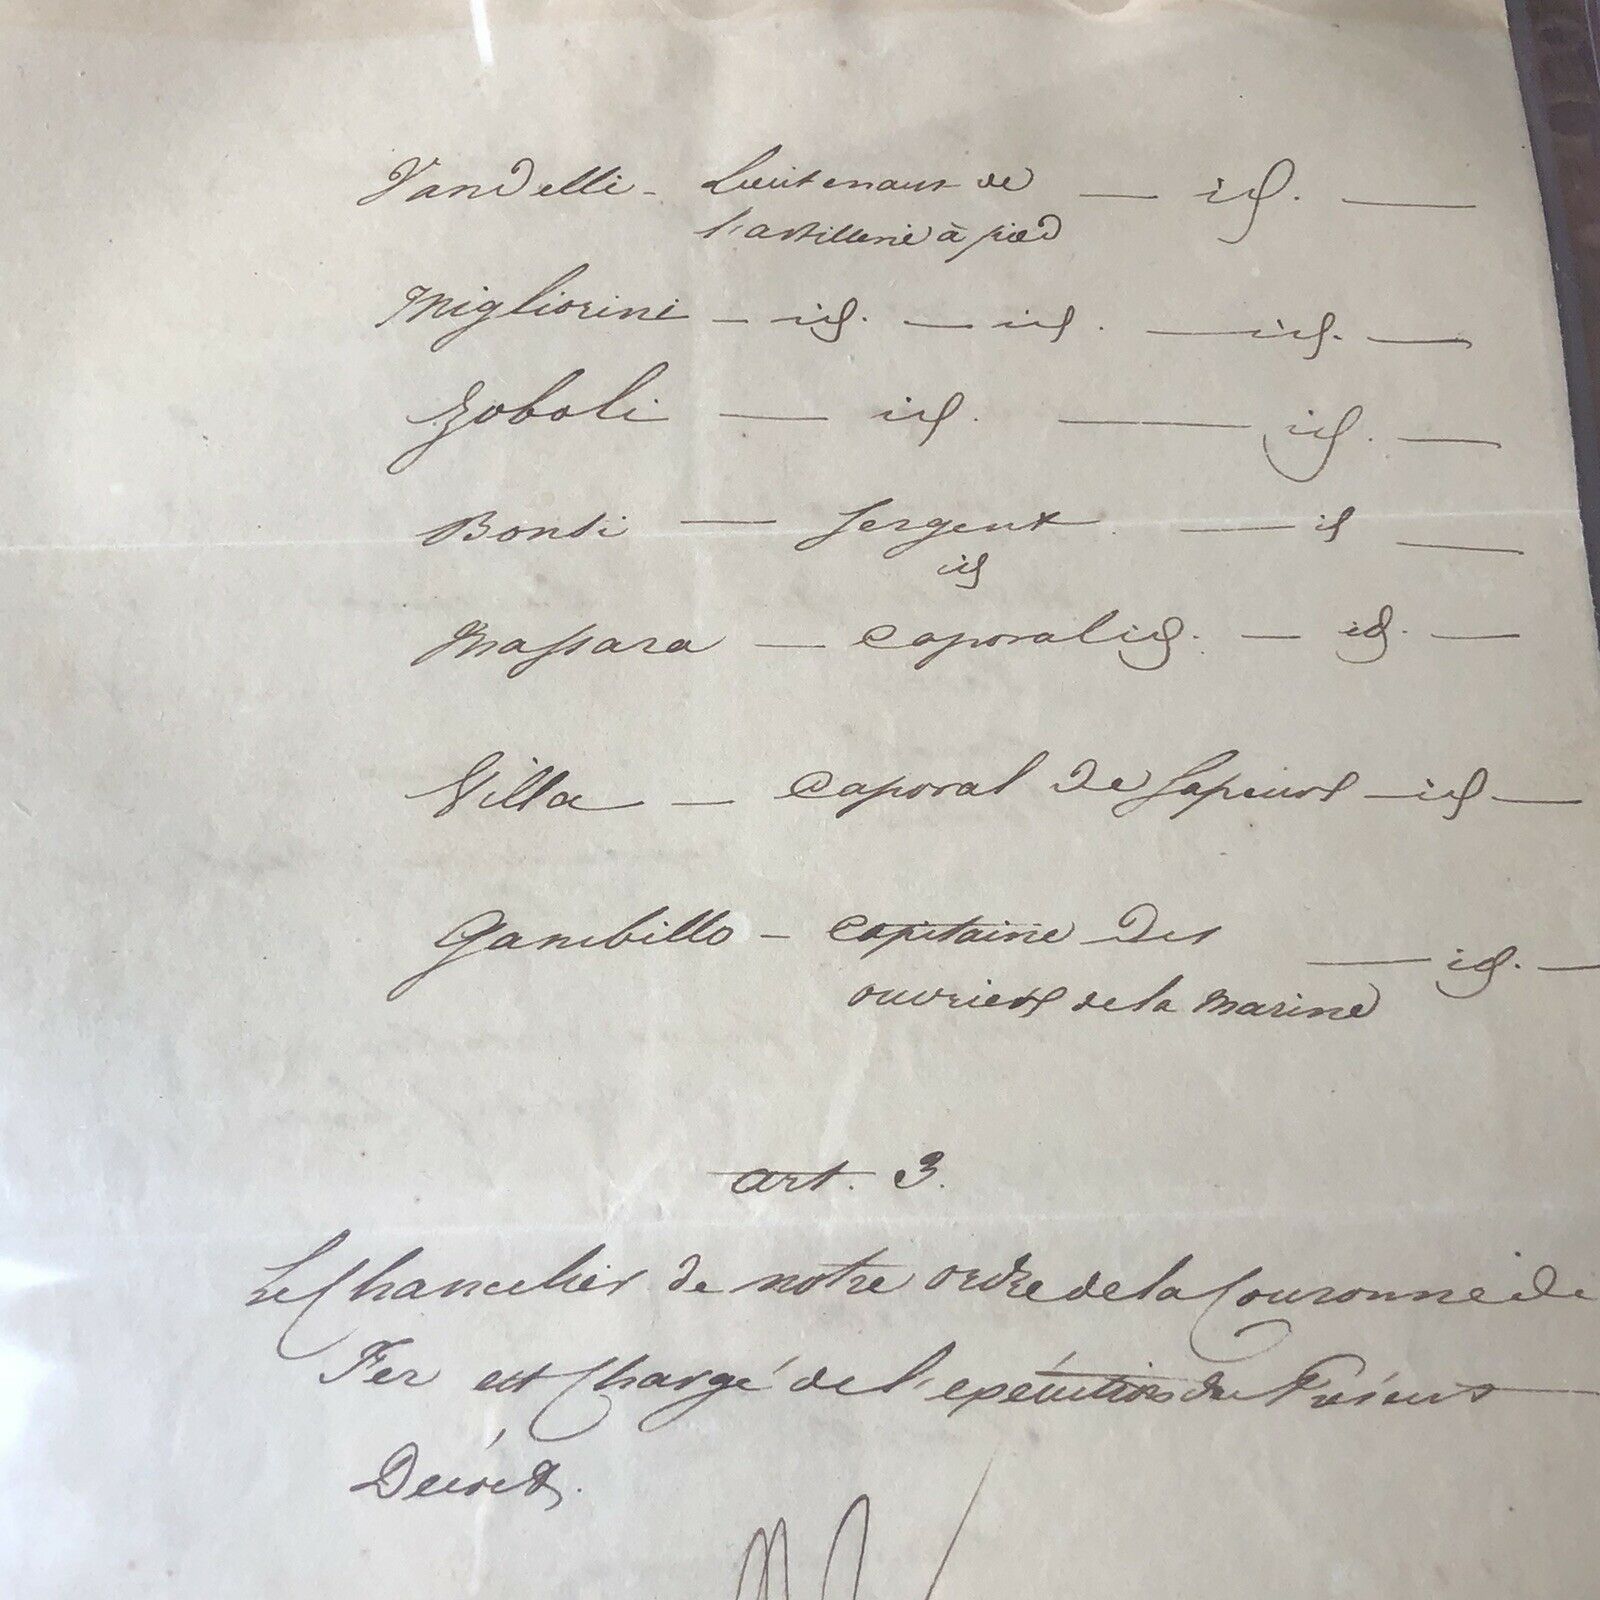 Vandelli - Lieutenant de — id. —
l'artillerie à pied
Migliorini — id. — id. — id. —
Zoboli — id. — id. —
Bonsi — Sergent — id —
id
Massara — Caporal id. — id. —
Villa — Caporal de Sapeurs — id —
Gambillo - Capitaine des — id. —
ouvriers de la Marine
art. 3.
Le Chancelier de notre ordre de la Couronne de
Fer est Chargé de l'exécution du Présent
Décret.